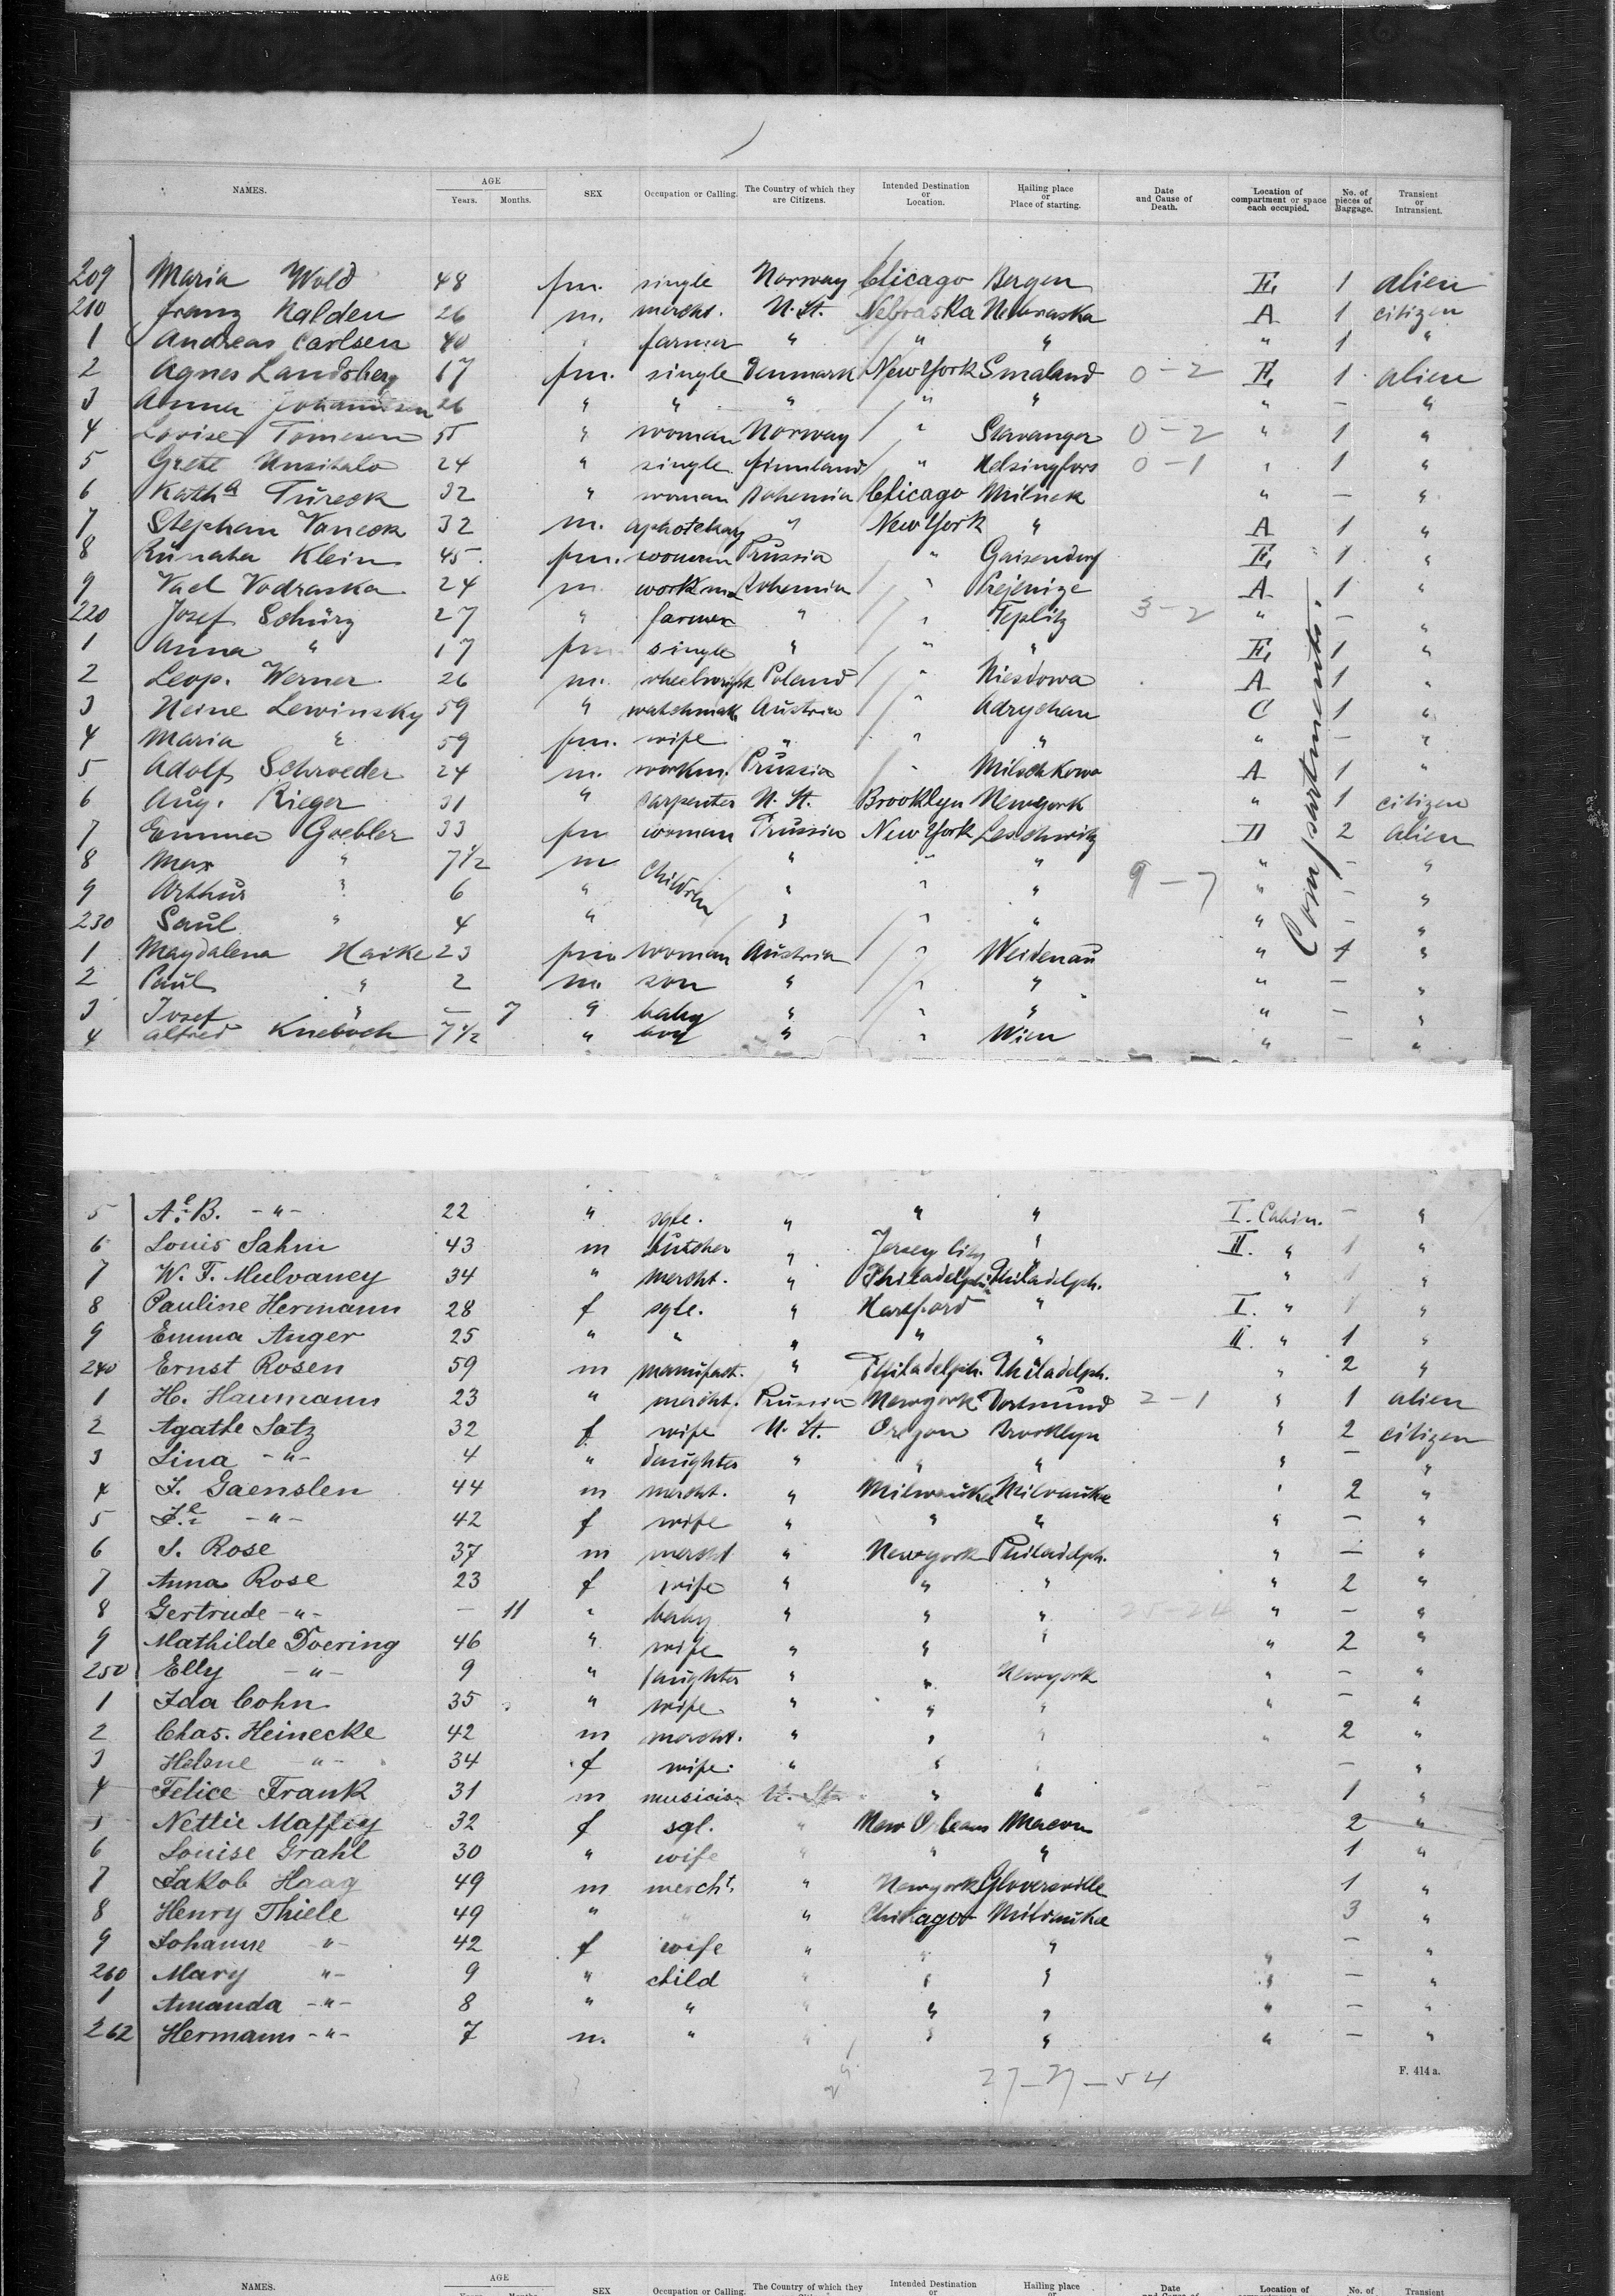 NAMES. AGE Years. Months. SEX Occupation or Calling. The Country of which they are Citizens. Intended Destination or Location. Hailing place or Place of starting. Date and Cause of Death. Location of compartment or space each occupied. No. of pieces of Baggage. Transient or Intransient.
209 Maria Wold 48 fm. single Norway Chicago Bergen E, 1 alien
210 Franz Nalden 26 m. mercht. U. St. Nebraska Nebraska A 1 citizen
1 Andreas Carlsen 40 farmer " " " " 1 "
2 Agnes Landsberg 17 fm. single Denmark New York Smaland 0-2 E, 1 alien
3 Anna Johannsen 26 " " " " " " — "
4 Lovise Tomesen 55 " woman Norway " Stavanger 0-2 " 1 "
5 Grete Unsitalo 24 " single Finnland " Helsingfors 0-1 " 1 "
6 Kath.a Tureck 32 " woman Bohemia Chicago Milnek " — "
7 Stephan Vaneck 32 m. " New York " A 1 "
8 Klein 45 fm. woman Prussia " Gaisendorf E, 1 "
9 Vacl Vodraska 24 m workm. Bohemia " A 1 "
220 Josef Schürz 27 " farmer " " Teplitz 3-2 " — "
1 Anna " 17 fm single " " " E, 1 "
2 Leop. Werner 26 m. wheelwright Poland " Niesdowa A 1 "
3 Heine Lewinsky 59 " watchmak. Austria " Adrychau C 1 "
4 Maria " 59 fm. wife " " " " — "
5 Adolf Schroeder 24 m. workm. Prussia " Miloschkowo A 1 "
6 Aug. Rieger 31 " carpenter U. St. Brooklyn Newyork " 1 citizen
7 Emma Goebler 33 fm woman Prussia New York Leschwitz D 2 alien
8 Max " 7 1/2 m children " " " " — "
9 Arthur " 6 " " " " 9-7 " — "
230 Saul " 4 " " " " " — "
1 Magdalena Haike 23 fm woman Austria " Weidenau " 1 "
2 Paul " 2 m. son " " " " — "
3 Josef " — 7 " baby " " " " — "
4 Alfred Knebock 7 1/2 " boy " " Wien " — "
Compartments.
5 A.e B. -"- 22 " sgle. " " " I. Cabin. — "
6 Louis Sahm 43 m butcher " Jersey City " II. " 1 "
7 W. F. Mulvaney 34 " mercht. " Philadelph. Philadelph. " 1 "
8 Pauline Hermann 28 f sgle. " Harsford " I. " 1 "
9 Emma Anger 25 " " " " " II. " 1 "
240 Ernst Rosen 59 m manufact. " Philadelph. Philadelph. " 2 "
1 H. Haumann 23 " mercht. Prussia Newyork Dortmund 2-1 " 1 alien
2 Agathe Satz 32 f wife U. St. Oregon Brooklyn " 2 citizen
3 Lina -"- 4 " daughter " " " " — "
4 J. Gaenslen 44 m mercht. " Milwaukee Milwaukee " 2 "
5 J.e -"- 42 f wife " " " " — "
6 S. Rose 37 m mercht " Newyork Philadelph. " — "
7 Anna Rose 23 f wife " " " " 2 "
8 Gertrude -"- — 11 " baby " " " 25-24 " — "
9 Mathilde Doering 46 " wife " " " " 2 "
250 Elly -"- 9 " daughter " " Newyork " — "
1 Ida Cohn 35 " wife " " " " — "
2 Chas. Heinecke 42 m mercht. " " " " 2 "
3 Helene -"- 34 f wife " " " — "
4 Felice Frank 31 m musician U. St. " " 1 "
5 Nettie Maffey 32 f sgl. " New Orleans Macon 2 "
6 Louise Grahl 30 " wife " " " 1 "
7 Jakob Haag 49 m mercht. " Newyork Gloversville 1 "
8 Henry Thiele 49 " " " Chikago Milwaukee 3 "
9 Johanne -"- 42 f wife " " " " — "
260 Mary "- 9 " child " " " — "
1 Amanda -"- 8 " " " " " " — "
262 Hermann -"- 7 m. " " " " " — "
27-27-54
F. 414 a.
NAMES. AGE SEX Occupation or Calling. The Country of which they Intended Destination or Hailing place Date Location of No. of Transient